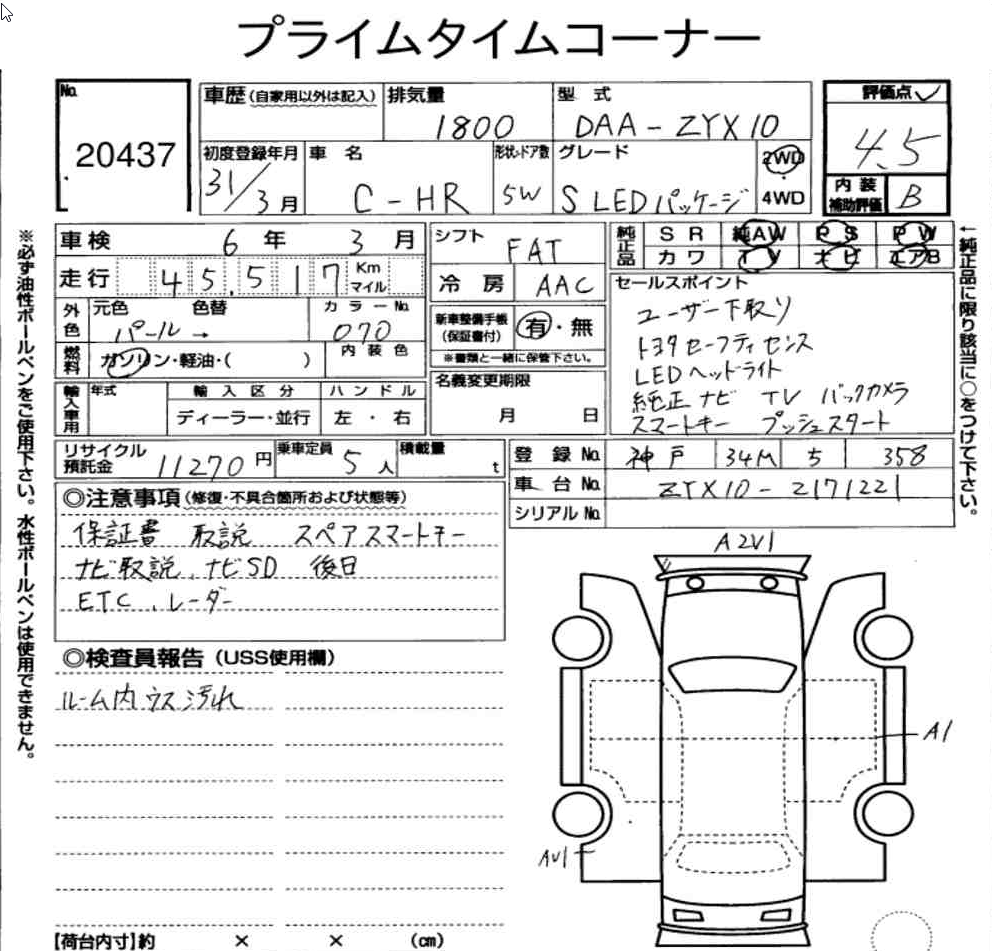 プライムタイムコーナー
No.
20437
車歴(自家用以外は記入)
排気量
1800
型 式
DAA-ZYX10
評価点
4.5
初度登録年月
31/3月
車 名
C-HR
形状・ドア数
5W
グレード
S LEDパッケージ
2WD
4WD
内装補助評価
B
車検 6年 3月
シフト
FAT
純正品
SR 純AW PS PW
カワ TV ナビ エアB
走行 45,517 Km マイル
冷 房 AAC
セールスポイント
ユーザー下取り
トヨタセーフティセンス
LEDヘッドライト
純正ナビ TV バックカメラ
スマートキー プッシュスタート
外色
元色 色替
パール →
カラーNo.
070
新車整備手帳(保証書付)
有・無
※書類と一緒に保管下さい。
燃料
ガソリン・軽油・( )
内装色
名義変更期限
月 日
輸入車用
年式
輸入区分
ハンドル
ディーラー・並行
左 ・ 右
リサイクル預託金 11270円
乗車定員 5人
積載量 t
登 録 No. 神戸 34M 5 358
車 台 No. ZYX10-2171221
シリアル No.
◎注意事項(修復・不具合箇所および状態等)
保証書 取説 スペアスマートキー
ナビ取説、ナビSD 後日
ETC、レーダー
◎検査員報告(USS使用欄)
ルーム内ウス汚れ
A2V1
A1
AV1
【荷台内寸】約 × × (cm)
※必ず油性ボールペンをご使用下さい。水性ボールペンは使用できません。
←純正品に限り該当に○をつけて下さい。